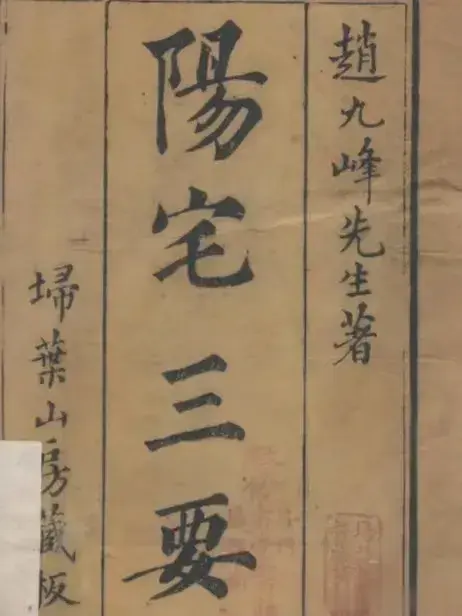 趙九峰先生著
陽宅三要
埽葉山房藏板